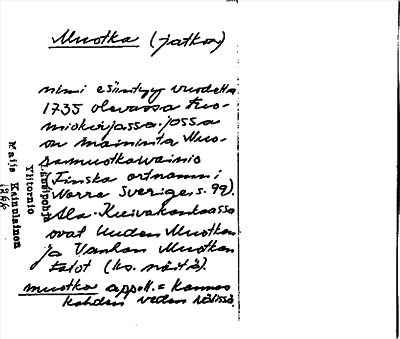 Muotka (jatkoa)
nimi esiintyy vuodelta
1735 olevassa tuo-
miokirjassa. jossa
on maininta Muo-
samuotkawainio
Finska ortnamn i
Norra Sverige, s. 99).
Ala-Kuivakankaassa
ovat Uuden Muotkan
ja Vanhan Muotkan
talot (ks. näitä).
muotka appell. = kannas
kahden veden välissä.
Länsipohja
Ylitornio
Maija Kainulainen
1966